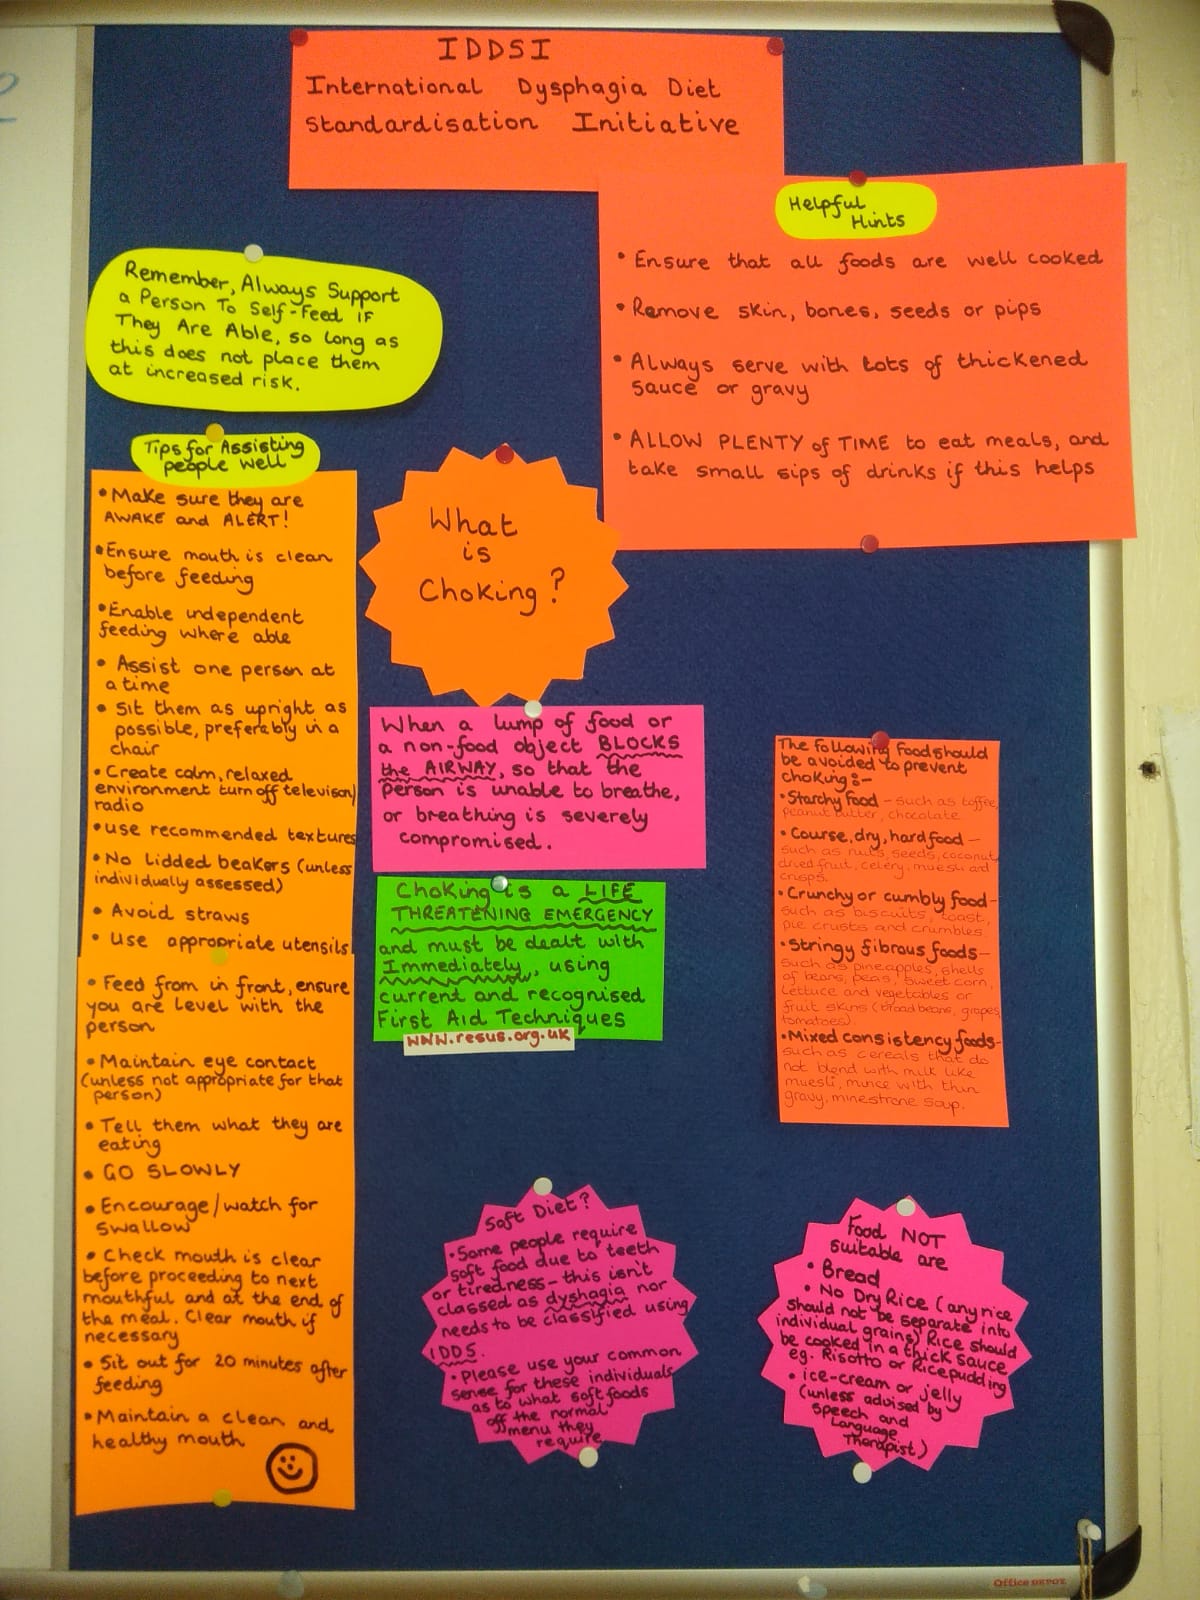 IDDSI
International Dysphagia Diet
Standardisation Initiative
Helpful
Hints
• Ensure that all foods are well cooked
• Remove skin, bones, seeds or pips
• Always serve with lots of thickened
sauce or gravy
• ALLOW PLENTY of TIME to eat meals, and
take small sips of drinks if this helps
Remember, Always Support
a Person To Self-Feed IF
They Are Able, so long as
this does not place them
at increased risk.
Tips for Assisting
people well
• Make sure they are
AWAKE and ALERT!
• Ensure mouth is clean
before feeding
• Enable independent
feeding where able
• Assist one person at
a time
• Sit them as upright as
possible, preferably in a
chair
• Create calm, relaxed
environment turn off televison/
radio
• use recommended textures
• No lidded beakers (unless
individually assessed)
• Avoid straws
• Use appropriate utensils
• Feed from in front, ensure
you are level with the
person
• Maintain eye contact
(unless not appropriate for that
person)
• Tell them what they are
eating
• GO SLOWLY
• Encourage/watch for
swallow
• Check mouth is clear
before proceeding to next
mouthful and at the end of
the meal. Clear mouth if
necessary
• Sit out for 20 minutes after
feeding
• Maintain a clean and
healthy mouth
What
is
Choking?
When a lump of food or
a non-food object BLOCKS
the AIRWAY, so that the
person is unable to breathe,
or breathing is severely
compromised.
Choking is a LIFE
THREATENING EMERGENCY
and must be dealt with
Immediately, using
current and recognised
First Aid Techniques
www.resus.org.uk
The following food should
be avoided to prevent
choking:-
• Starchy food - such as toffee,
peanut butter, chocolate
• Course, dry, hard food -
such as nuts, seeds, coconut,
dried fruit, celery, muesli and
crisps.
• Crunchy or cumbly food -
such as biscuits, toast,
pie crusts and crumbles
• Stringy fibrous foods -
such as pineapples, shells
of beans, peas, sweet corn,
lettuce and vegetables or
fruit skins (broad beans, grapes,
tomatoes)
• Mixed consistency foods -
such as cereals that do
not blend with milk like
muesli, mince with thin
gravy, minestrone soup.
Soft Diet?
• Some people require
soft food due to teeth
or tiredness - this isn't
classed as dyshagia nor
needs to be classified using
IDDS.
• Please use your common
sense for these individuals
as to what soft foods
off the normal
menu they
require
Food NOT
suitable are
• Bread
• No Dry Rice (any rice
should not be separate into
individual grains) Rice should
be cooked in a thick sauce
eg. Risotto or Rice pudding
• ice-cream or jelly
(unless advised by
Speech and
Language
Therapist)
Office DEPOT